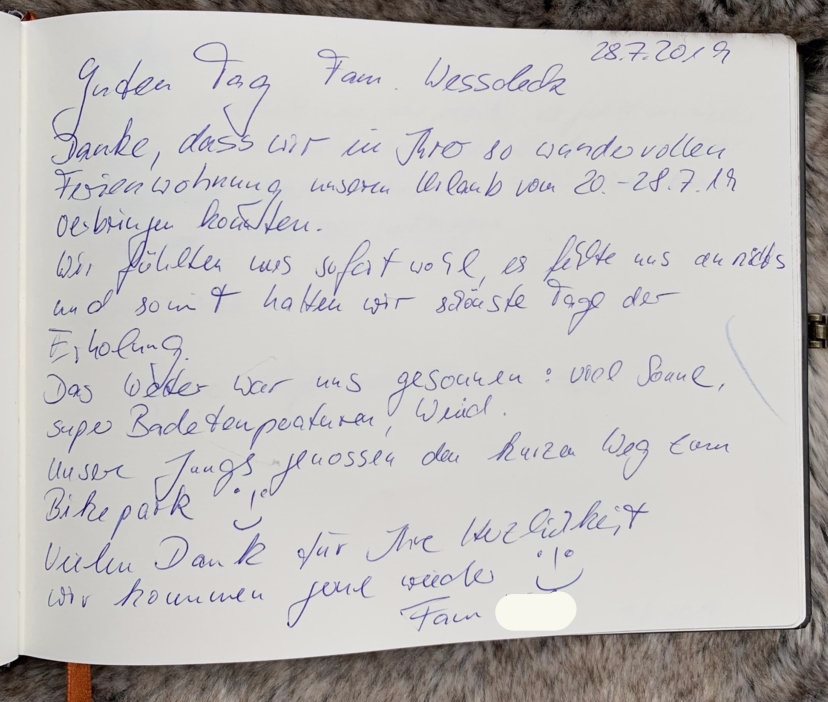 28.7.2019
Guten Tag Fam. Wessoleck
Danke, dass wir in Ihrer so wundervollen
Ferienwohnung unseren Urlaub vom 20.-28.7.19
verbringen konnten.
Wir fühlten uns sofort wohl, es fehlte uns an nichts
und somit hatten wir schönste Tage der
Erholung.
Das Wetter war uns gesonnen: viel Sonne,
super Badetemperaturen, Wind.
Unsere Jungs genossen den kurzen Weg zum
Bikepark
Vielen Dank für Ihre Herzlichkeit
wir kommen gerne wieder
Fam